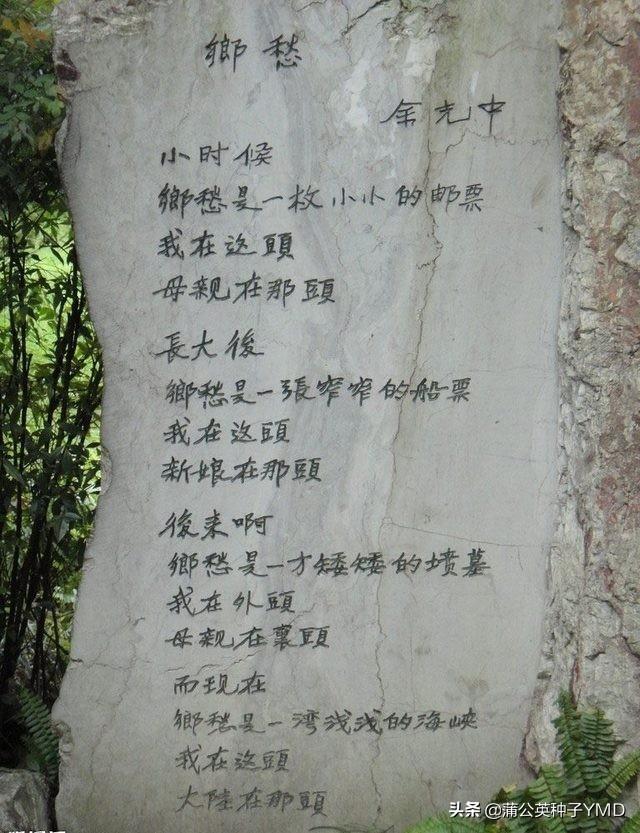 鄉愁
余光中
小时候
鄉愁是一枚小小的邮票
我在这頭
母亲在那頭
長大後
鄉愁是一張窄窄的船票
我在这頭
新娘在那頭
後来啊
鄉愁是一方矮矮的墳墓
我在外頭
母亲在裏頭
而现在
鄉愁是一湾浅浅的海峽
我在这頭
大陸在那頭
头条 @蒲公英种子YMD